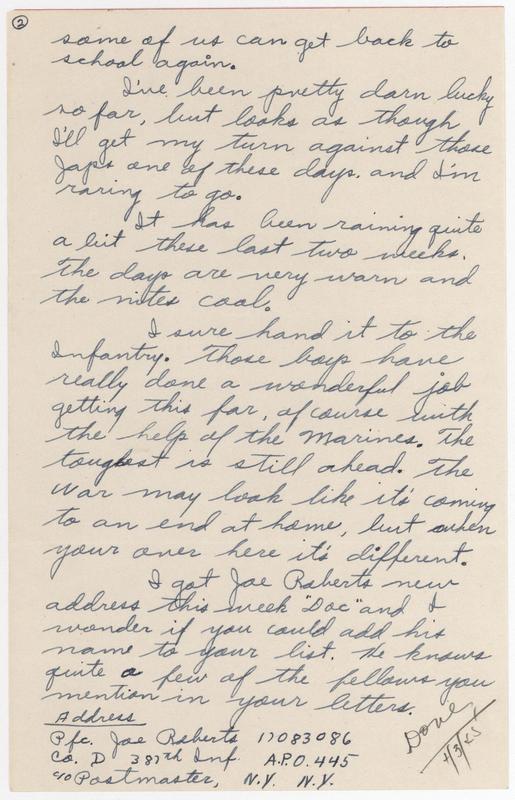 2
some of us can get back to
school again.
I've been pretty darn lucky
so far, but looks as though
I'll get my turn against those
Japs one of these days. and I'm
raring to go.
It has been raining quite
a bit these last two weeks.
The days are very warn and
the nites cool.
I sure hand it to the
Infantry. Those boys have
really done a wonderful job
getting this far, of course with
the help of the Marines. The
toughest is still ahead. The
war may look like it's coming
to an end at home, but when
your over here it's different.
I got Joe Roberts new
address this week "Doc" and I
wonder if you could add his
name to your list. He knows
quite a few of the fellows you
mention in your letters.
Address
Pfc. Joe Roberts 17083086
Co. D 387th Inf. A.P.O. 445
c/o Postmaster, N.Y. N.Y.
Done
4/3/45